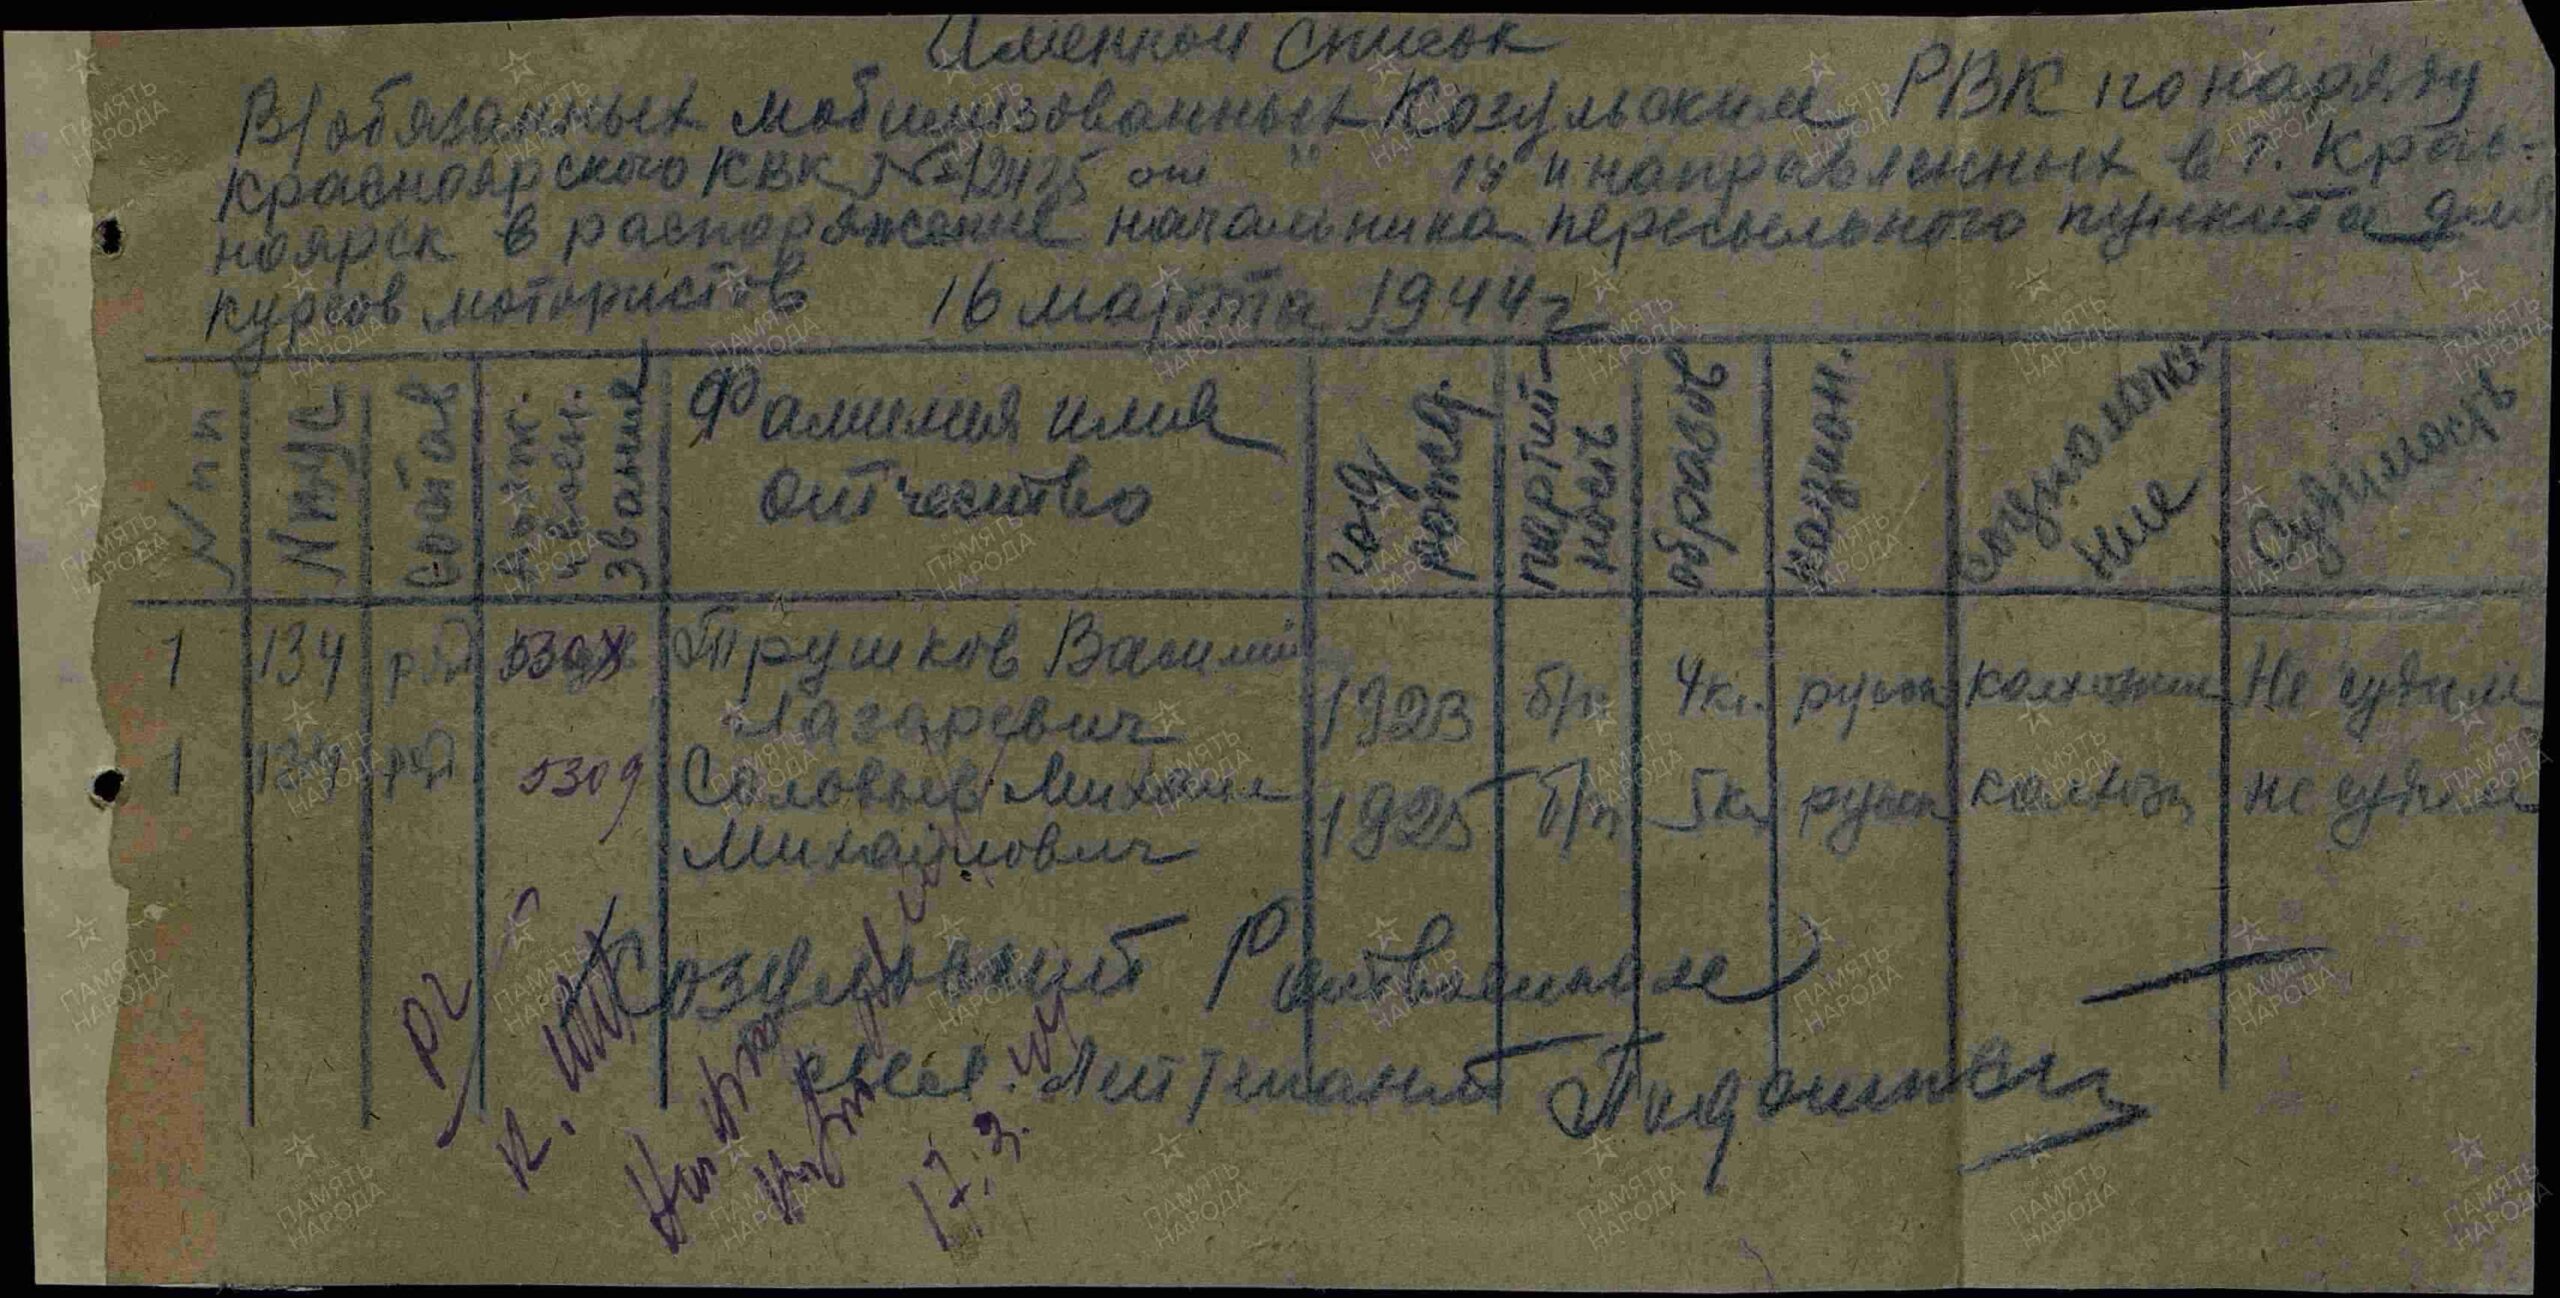 Именной список
В/обязанных мобилизованных Козульским РВК по наряду
Красноярского КВК №1/2425 от " " и направленных в г. Крас-
ноярск в распоряжение начальника пересыльного пункта для
курсов мотористов 16 марта 1944 г
N п п
N
Состав
звания
Фамилия имя отчество
год рожд.
партий-ность
образов
национ.
соцположение
Судимость
1 134 ряд 5308 Трушков Василий Лазаревич 1923 б/п 4 кл. русск Не судим
1 134 ряд 5309 Соловьев Михаил Михайлович 1925 б/п 5 кл русск колхозн не судим
Козульский Райвоенком
Лейтенант
17.3.
ПАМЯТЬ НАРОДА